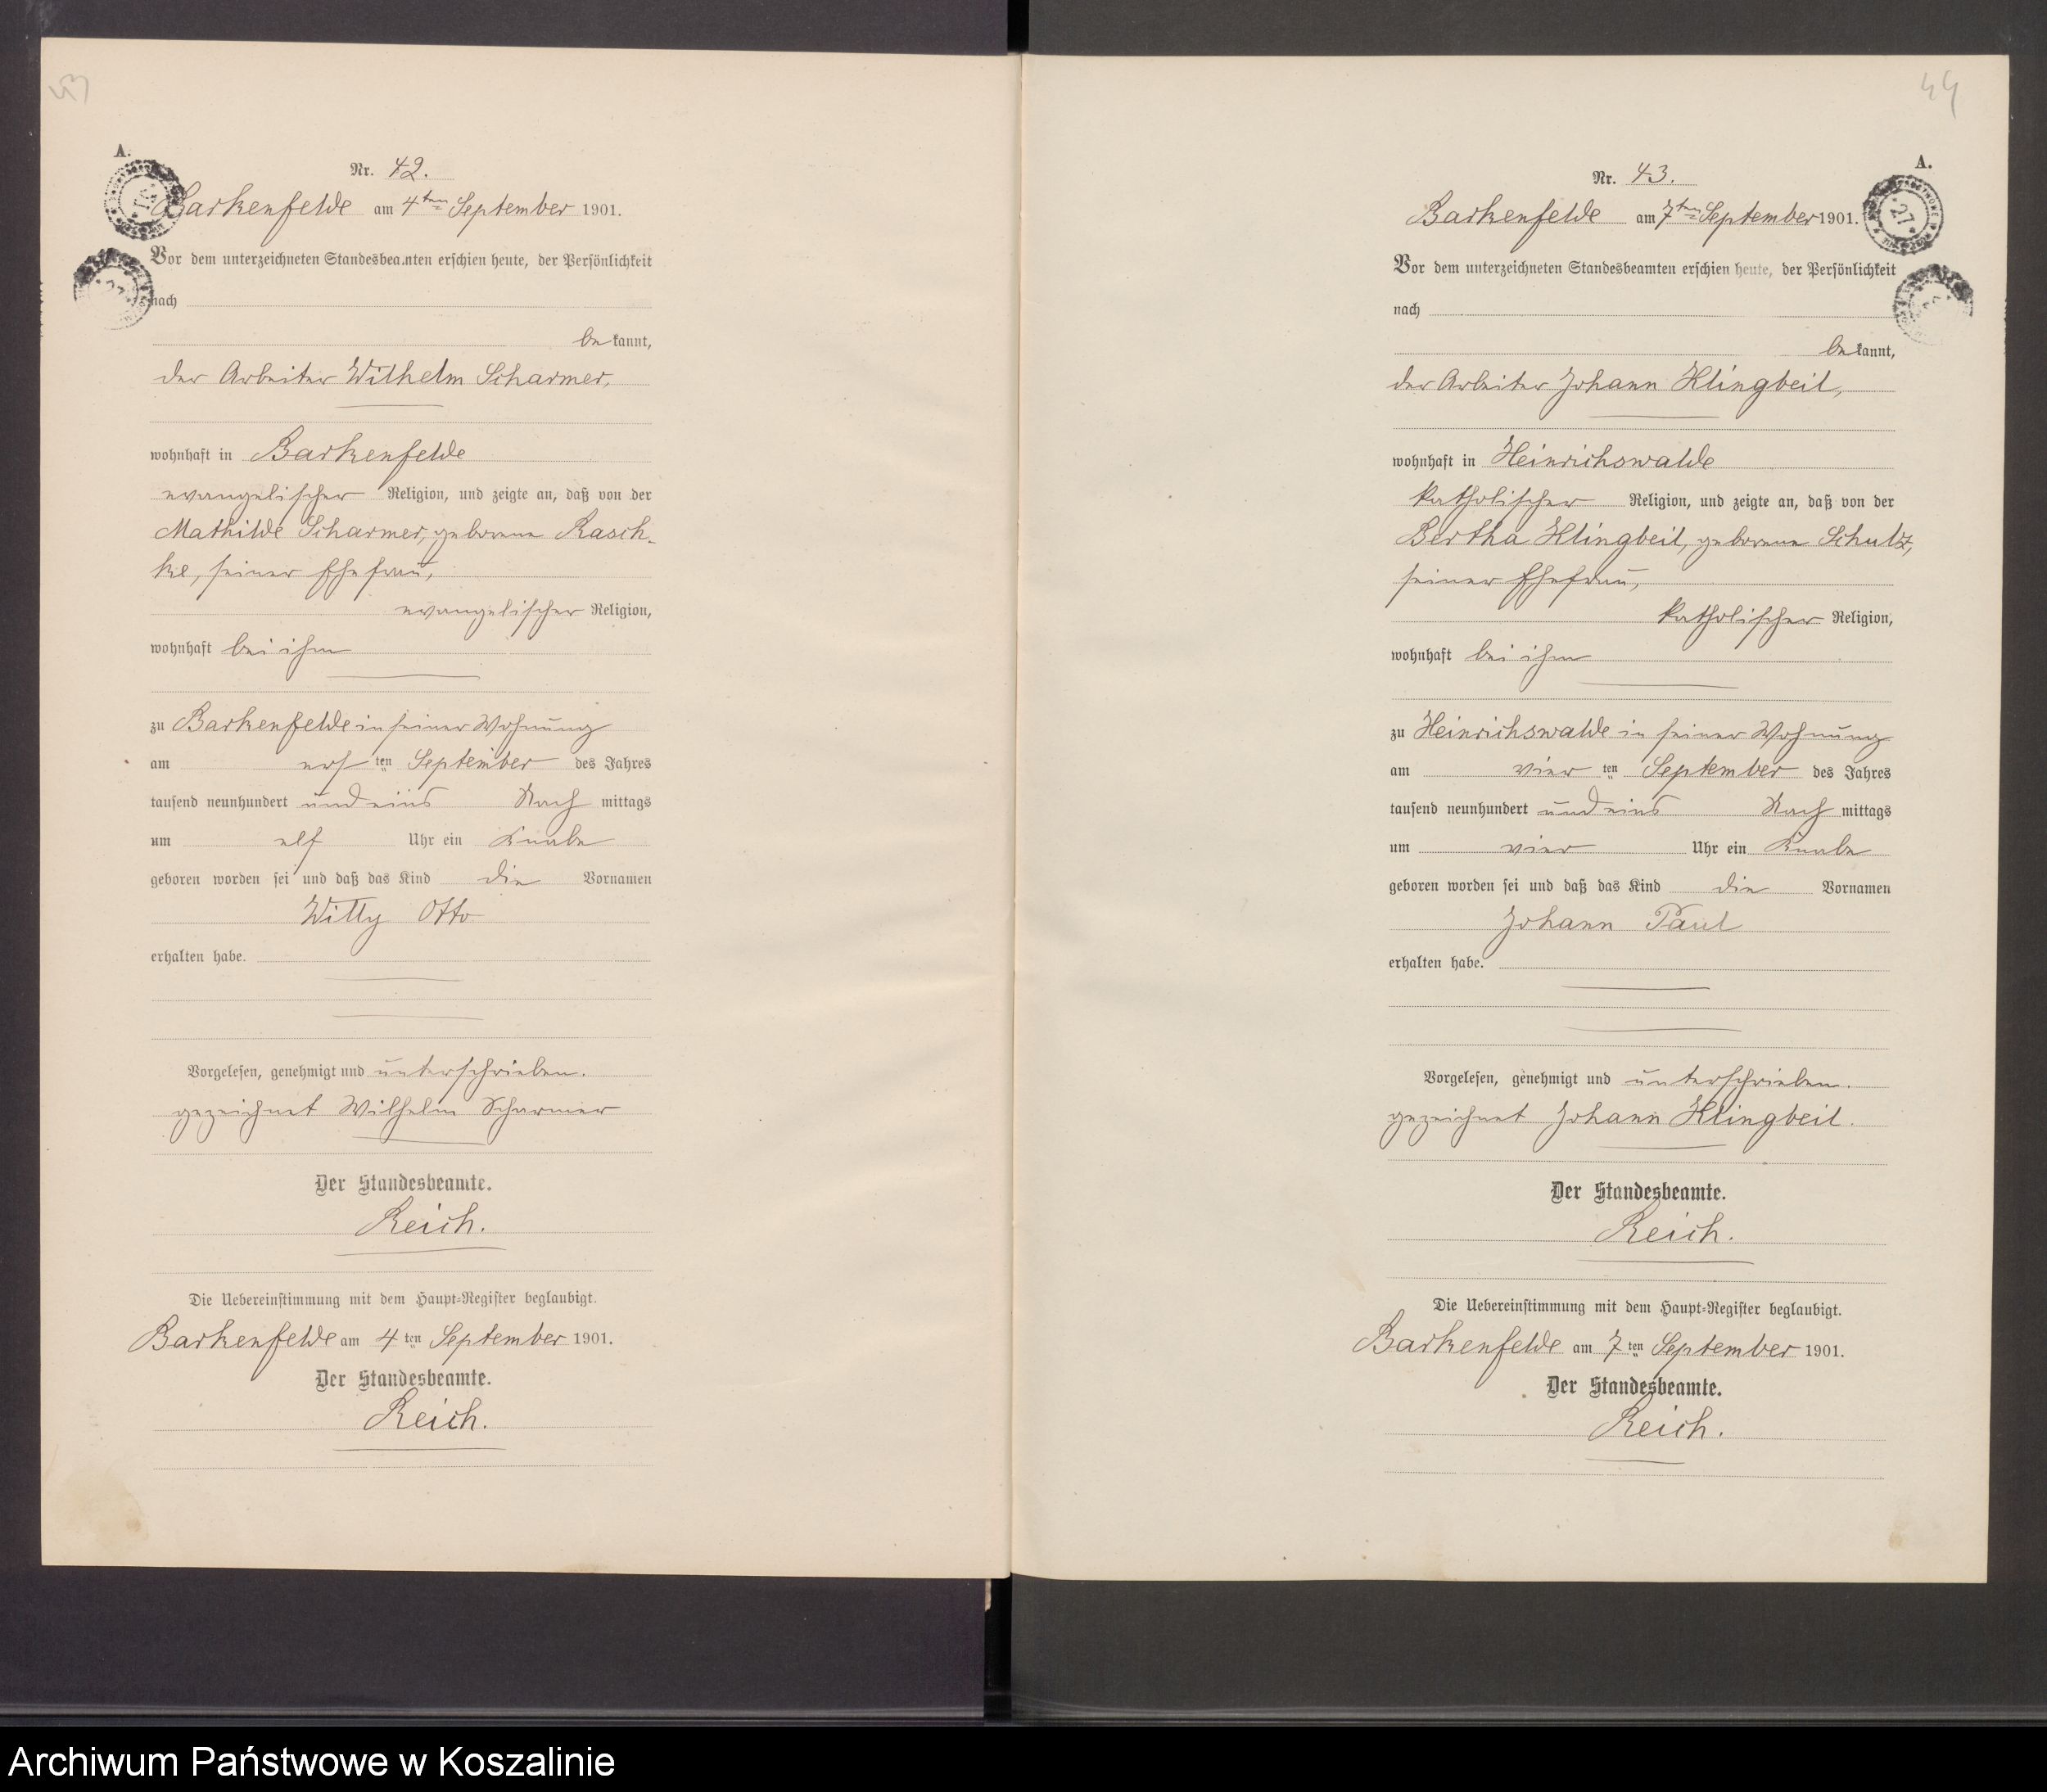 A.
Nr. 42.
Barkenfelde am 4ten September 1901.
Vor dem unterzeichneten Standesbeamten erschien heute, der Persönlichkeit
nach
bekannt,
der Arbeiter Wilhelm Scharmer,
wohnhaft in Barkenfelde
evangelischer Religion, und zeigte an, daß von der
Mathilde Scharmer, geborene Rasch-
ke, seiner Ehefrau,
evangelischer Religion,
wohnhaft bei ihm
zu Barkenfelde in seiner Wohnung
am ersten September des Jahres
tausend neunhundert und eins Nach mittags
um elf Uhr ein Knabe
geboren worden sei und daß das Kind die Vornamen
Willy Otto
erhalten habe.
Vorgelesen, genehmigt und unterschrieben.
gezeichnet Wilhelm Scharmer
Der Standesbeamte.
Reich.
Die Uebereinstimmung mit dem Haupt-Register beglaubigt.
Barkenfelde am 4ten September 1901.
Der Standesbeamte.
Reich.
44
A.
Nr. 43.
27
Barkenfelde am 7ten September 1901.
Vor dem unterzeichneten Standesbeamten erschien heute, der Persönlichkeit
nach
bekannt,
der Arbeiter Johann Klingbeil,
wohnhaft in Heinrichswalde
katholischer Religion, und zeigte an, daß von der
Bertha Klingbeil, geborene Schulz,
seiner Ehefrau,
katholischer Religion,
wohnhaft bei ihm
zu Heinrichswalde in seiner Wohnung
am vierten September des Jahres
tausend neunhundert und eins Nach mittags
um vier Uhr ein Knabe
geboren worden sei und daß das Kind die Vornamen
Johann Paul
erhalten habe.
Vorgelesen, genehmigt und unterschrieben.
gezeichnet Johann Klingbeil.
Der Standesbeamte.
Reich.
Die Uebereinstimmung mit dem Haupt-Register beglaubigt.
Barkenfelde am 7ten September 1901.
Der Standesbeamte.
Reich.
Archiwum Państwowe w Koszalinie